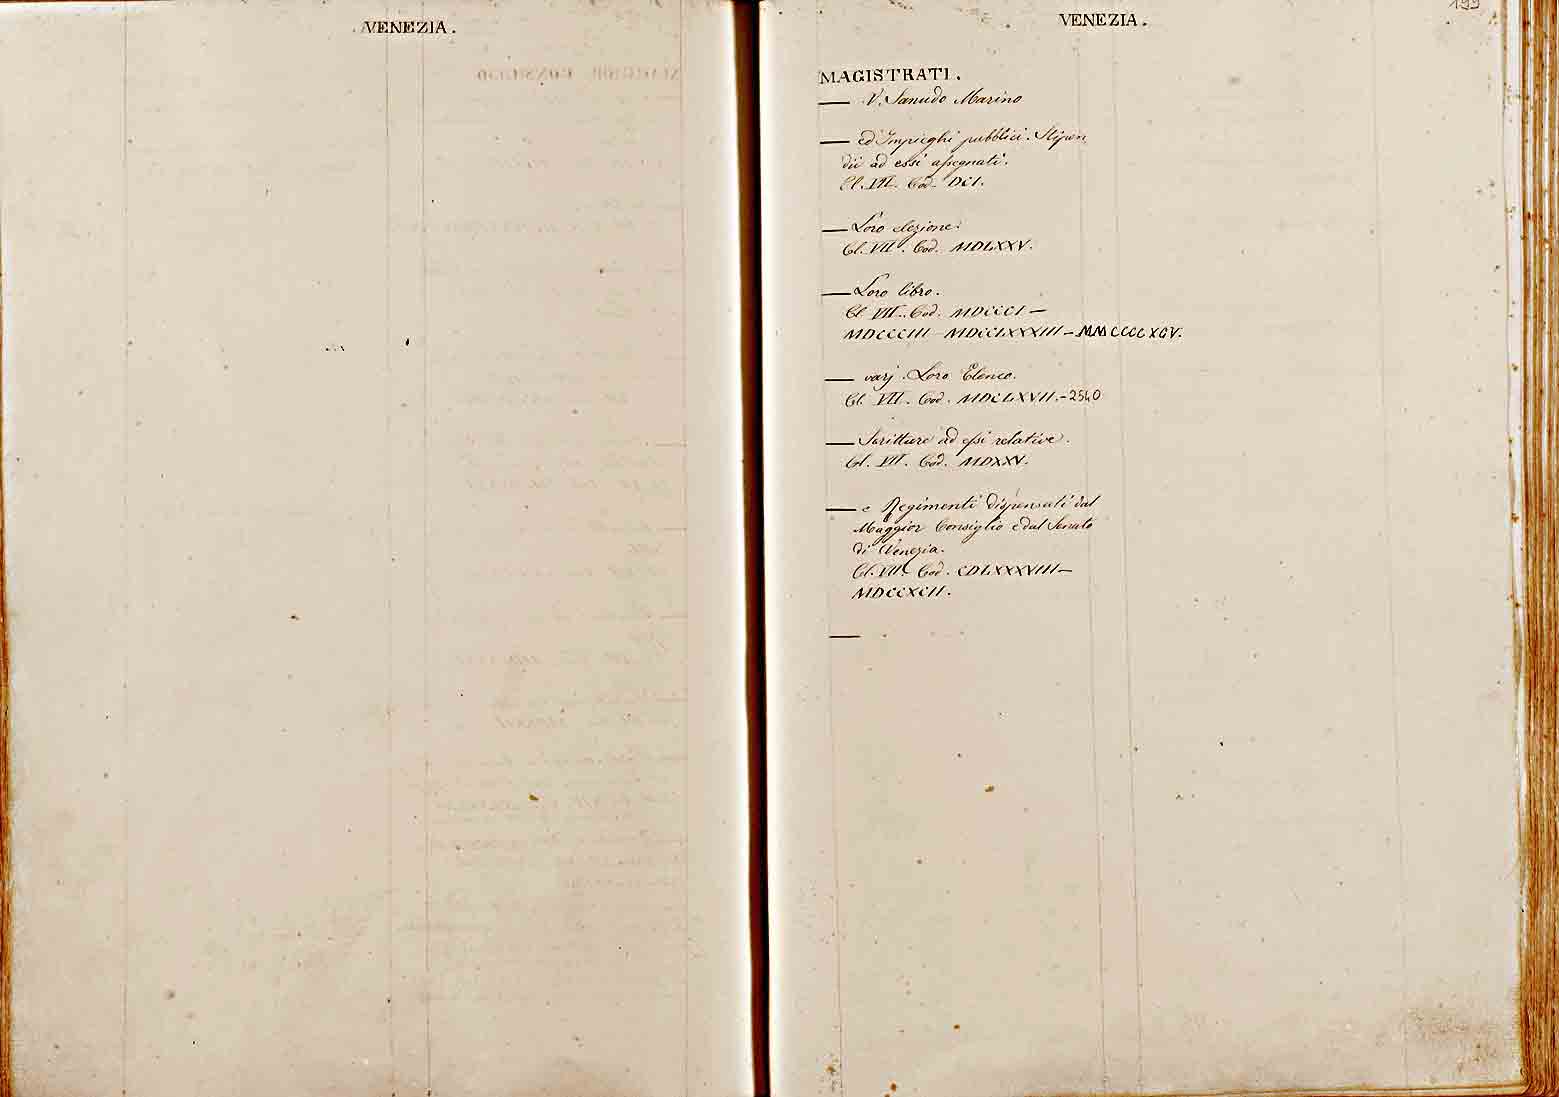 VENEZIA.
VENEZIA.
199
MAGISTRATI.
— V. Sanudo Marino
— ed Impieghi pubblici. Stipen
dii ad essi assegnati.
Cl. VII. Cod. DCI.
— Loro elezione.
Cl. VII. Cod. MDLXXV.
— Loro libro.
Cl. VII. Cod. MDCCCI —
MDCCCIII — MDCCLXXXIII — MMCCCCXCV.
— varj. Loro Elenco.
Cl. VII. Cod. MDCLXVII. - 2540
— Scritture ad essi relative.
Cl. VII. Cod. MDXXV.
— e Regimenti dispensati dal
Maggior Consiglio e dal Senato
di Venezia.
Cl. VII. Cod. CDLXXXVIII —
MDCCXCII.
—